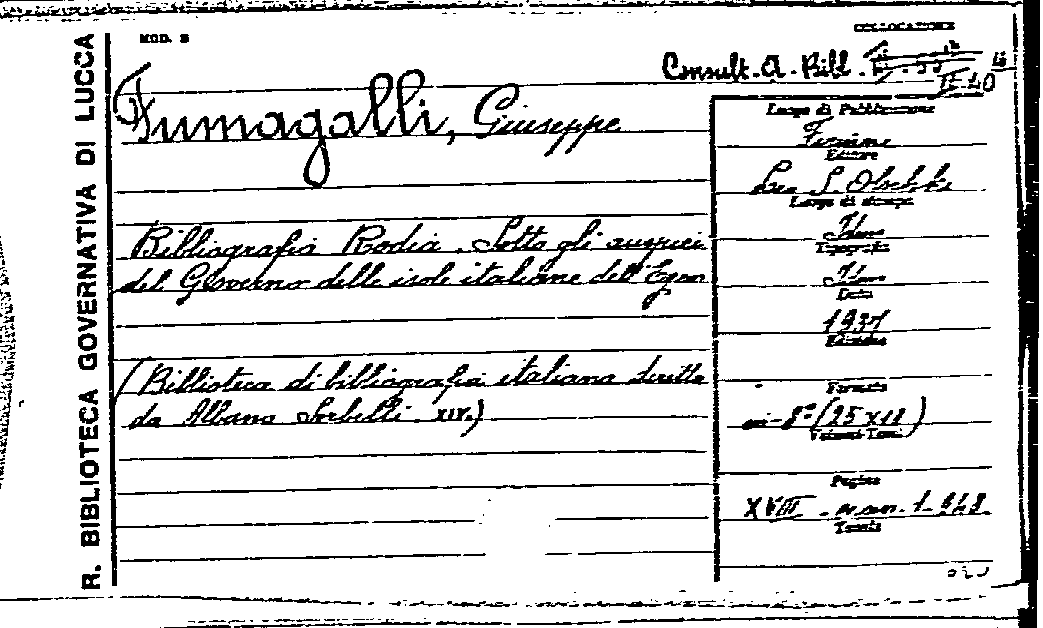 R. BIBLIOTECA GOVERNATIVA DI LUCCA
MOD. 8
COLLOCAZIONE
Consult. A. Bibl.
II-40
Fumagalli, Giuseppe
Bibliografia Rodia. Sotto gli auspici
del Governo delle isole italiane dell'Egeo
(Biblioteca di bibliografia italiana diretta
da Albano Sorbelli. XIV.)
Luogo di Pubblicazione
Firenze
Editore
Leo S. Olschki
Luogo di stampa
Idem
Tipografia
Idem
Data
1937
Edizione
Formato
in-8° (25x18)
Volumi-Tomi
Pagine
XVIII - n. num. 1-248.
Tavole